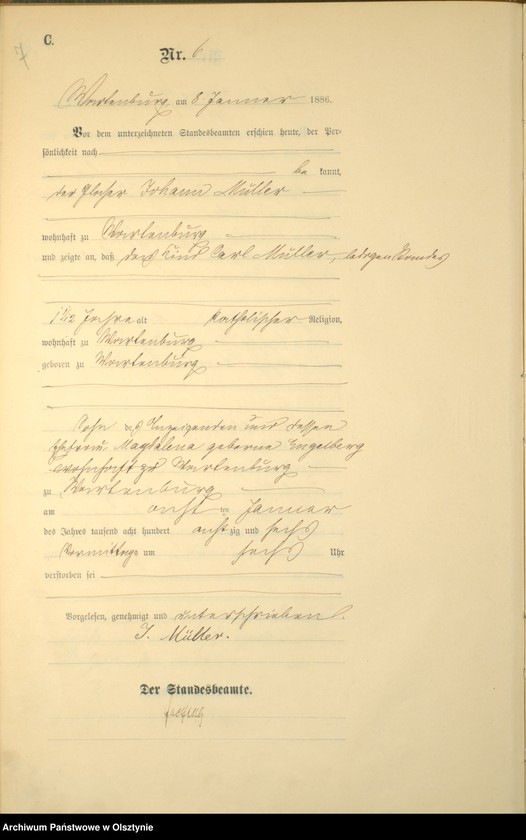 7
C.
Nr. 6
Wartenburg am 8 Januar 1886.
Vor dem unterzeichneten Standesbeamten erschien heute, der Per-
sönlichkeit nach
be kannt,
der Johann Müller
wohnhaft zu Wartenburg
und zeigte an, daß das Kind Carl Müller, ledigen Standes
Jahre alt katholischer Religion,
wohnhaft zu Wartenburg
geboren zu Wartenburg
Sohn des Anzeigenden und dessen
Ehefrau Magdalena geborene Engelberg
wohnhaft zu Wartenburg
zu Wartenburg
am acht ten Januar
des Jahres tausend acht hundert acht zig und sechs
Vormittags um sechs Uhr
verstorben sei
Vorgelesen, genehmigt und unterschrieben
J. Müller.
Der Standesbeamte.
Archiwum Państwowe w Olsztynie